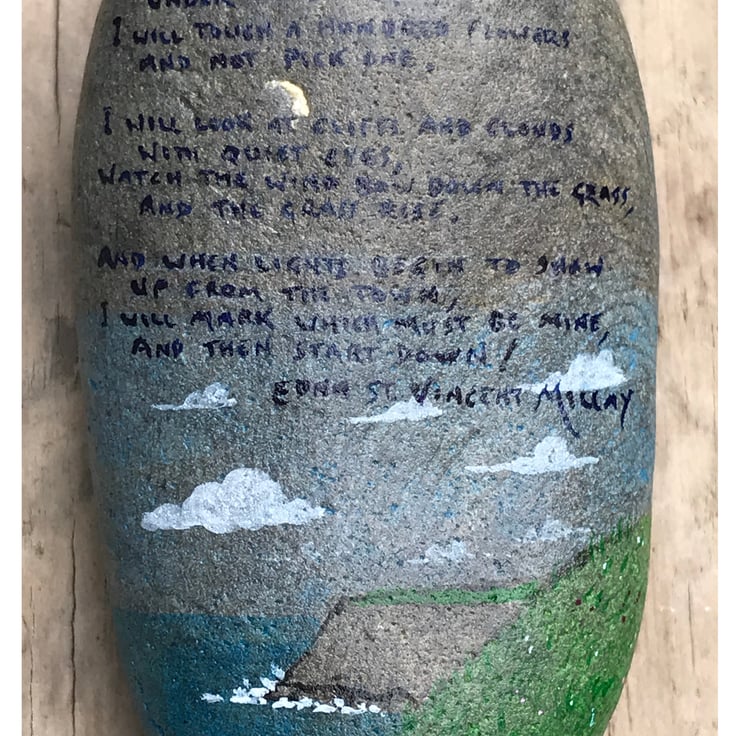 UNDER
I WILL TOUCH A HUNDRED FLOWERS
AND NOT PICK ONE.
I WILL LOOK AT CLIFFS AND CLOUDS
WITH QUIET EYES,
WATCH THE WIND BOW DOWN THE GRASS,
AND THE GRASS RISE.
AND WHEN LIGHTS BEGIN TO SHOW
UP FROM THE TOWN,
I WILL MARK WHICH MUST BE MINE,
AND THEN START DOWN!
EDNA ST. VINCENT MILLAY